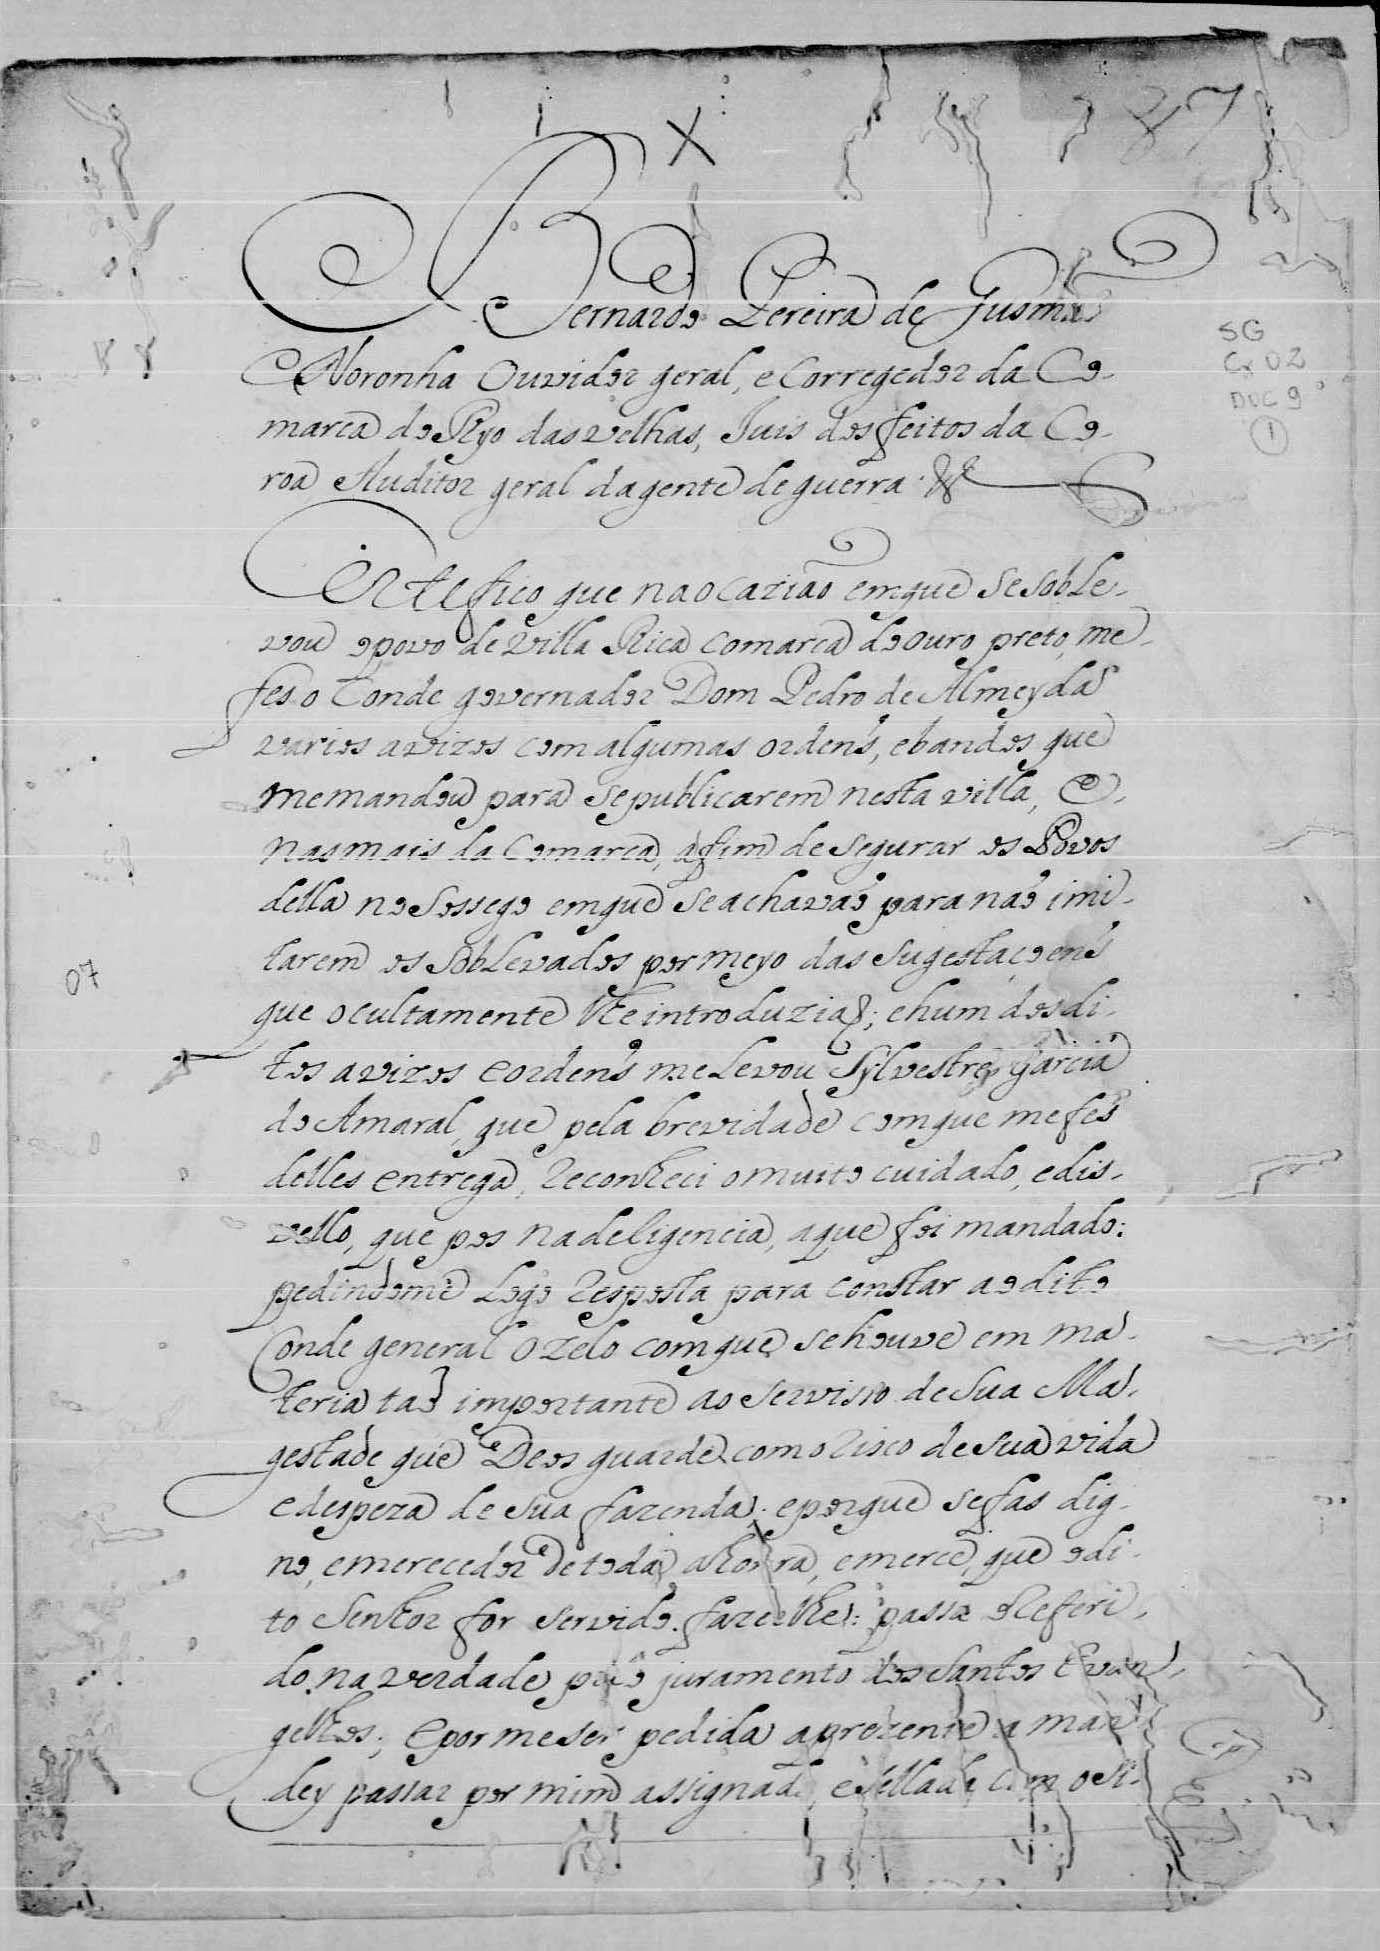 X
87
Bernardo Pereira de Gusmão
e Noronha Ouvidor geral, e Corregedor da Co-
marca do Ryo das velhas, Juis dos feitos da Co-
roa Auditor geral dagente de guerra.
SG
Cx 02
DOC 9
1
Certefico que na ocazião emque Se soble-
vou o povo de Villa Rica comarca do ouro preto, me
fes o Conde governador Dom Pedro de Almeyda
varios avizos com algumas ordens, ebandos que
memandou para Sepublicarem nesta villa, e
nasmais da Comarca, afim de Segurar os Povos
della no Sossego emque Seachavaõ para naõ imi-
tarem os Soblevados por meyo das Sugestaçoens
que ocultamente lhe introduziaõ; ehum dosdi-
tos avizos eordens me Levou Sylvestre Garcia
do Amaral, que pela brevidade comque mefes
delles entrega, Reconheci o muito cuidado, edis-
vello, que pos nadeligencia, aque foi mandado:
07
pedindome Logo Resposta para constar aodito
Conde general o zelo comque sehouve em ma-
teria taõ importante ao Servisso de Sua Ma-
gestade que Deos guarde com o Risco de Sua vida
edespeza de Sua fazenda; eporque sefas dig-
no, emerecedor de toda ahonra, emerce, que odi-
to Senhor for Servido fazerlhe: passa oReferi-
do na verdade pelo juramento dos Santos Evan-
gelhos; Epor me Ser pedida aprezente a man-
dey passar por mim assignada, esellada com oSi-